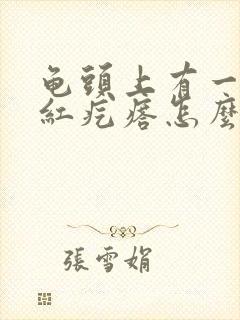 龟頭上有一
紅疙瘩怎麼
張雪娟